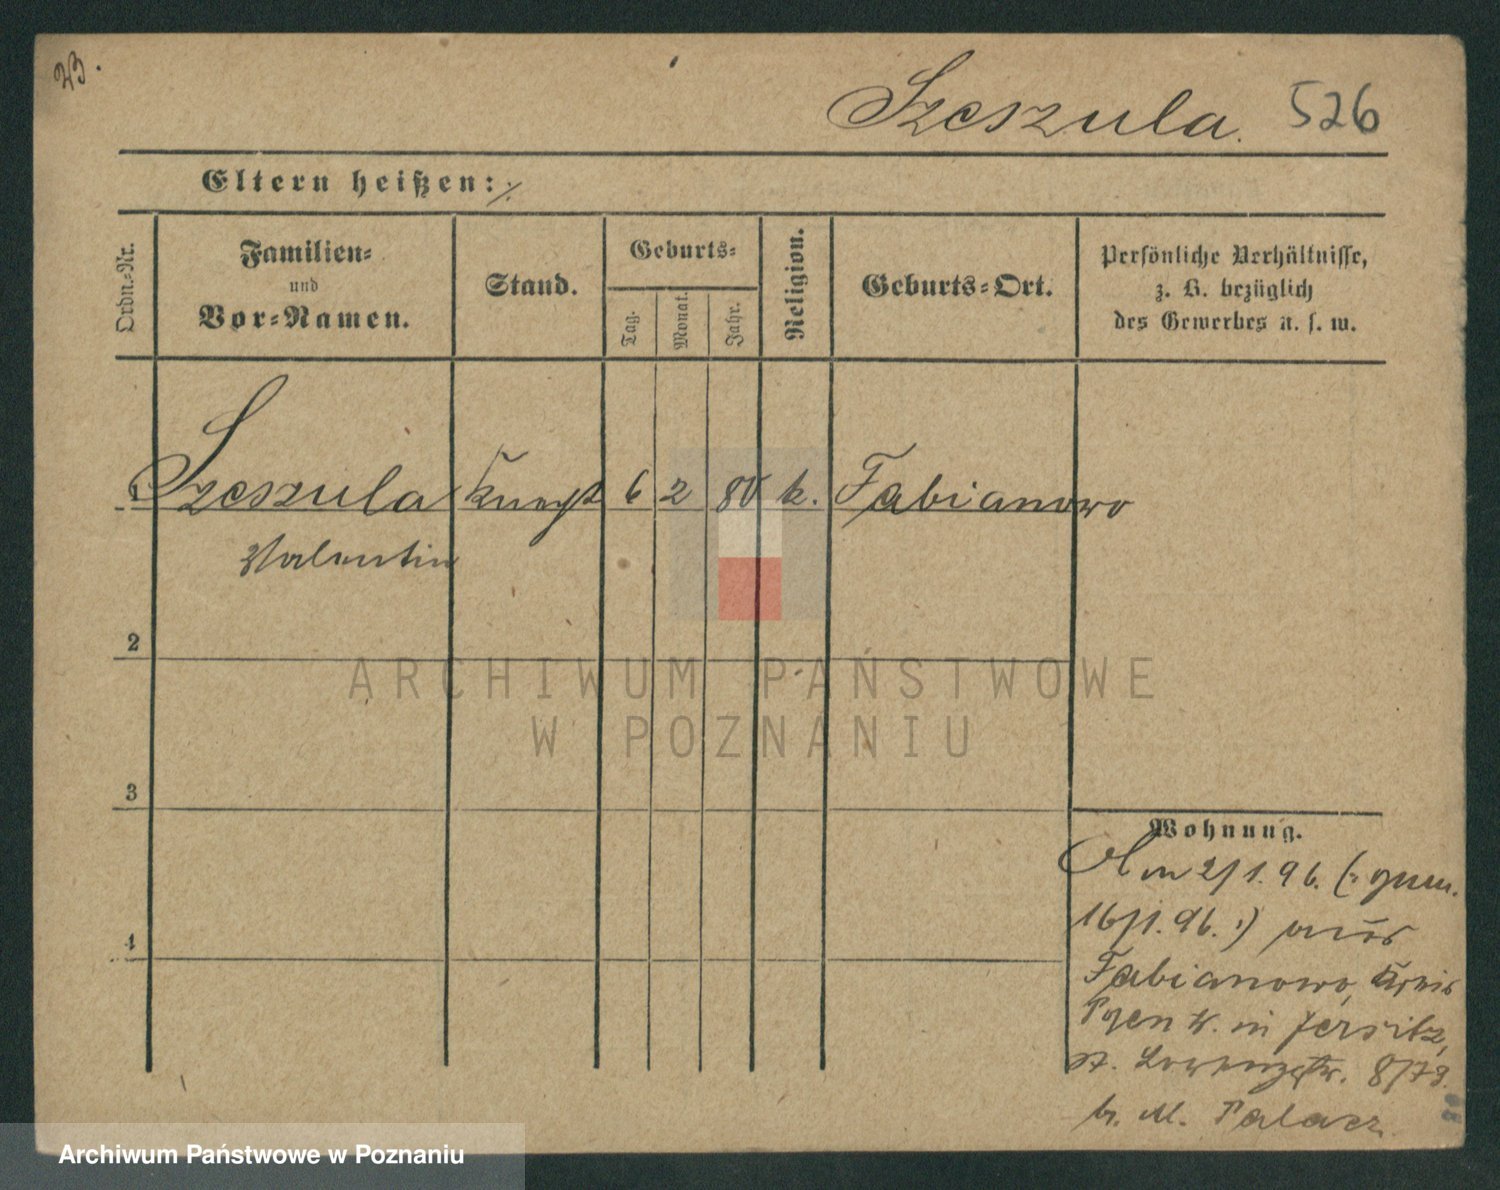 23.
Szeszula. 526
Eltern heißen: ./.
Ordn.-Nr.
Familien-
und
Vor-Namen.
Stand.
Geburts-
Tag.
Monat.
Jahr.
Religion.
Geburts-Ort.
Persönliche Verhältnisse,
z. B. bezüglich
des Gewerbes u. s. w.
1 Szeszula Knecht 6 2 80 k. Fabianowo
Valentin
2
3
4
Wohnung.
Am 2/1. 96. (: gem.
16/1. 96. :) aus
Fabianowo, Kreis
Posen W. in Jersitz,
8/79.
b. M. Palacz.
ARCHIWUM PAŃSTWOWE
W POZNANIU
Archiwum Państwowe w Poznaniu